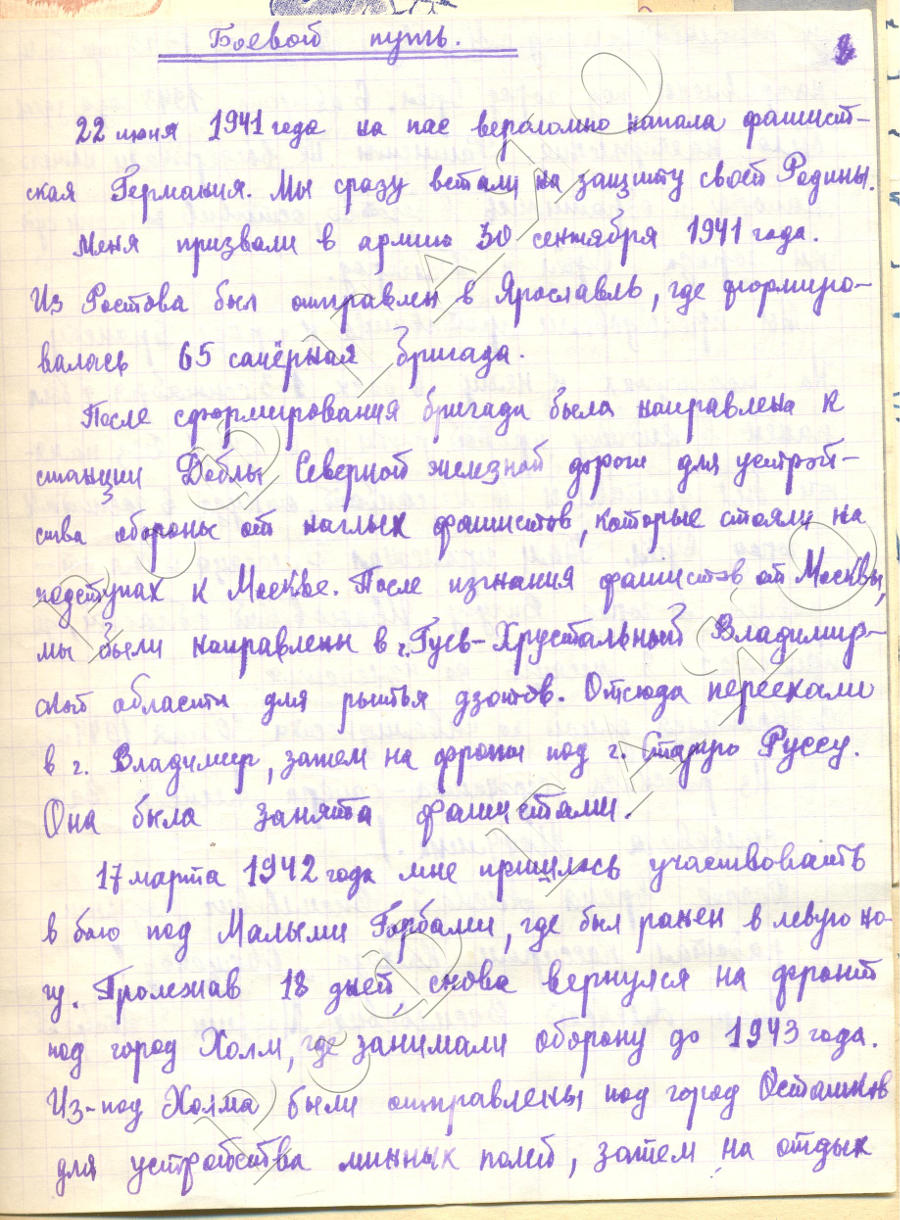 Боевой путь.
22 июня 1941 года на нас вероломно напала фашист-
ская Германия. Мы сразу встали на защиту своей Родины.
Меня призвали в армию 30 сентября 1941 года.
Из Ростова был отправлен в Ярославль, где формиро-
валась 65 сапёрная бригада.
После сформирования бригада была направлена к
станции Доблы Северной железной дороги для устрой-
ства обороны от наглых фашистов, которые стояли на
подступах к Москве. После изгнания фашистов от Москвы,
мы были направлены в г. Гусь-Хрустальный Владимир-
ской области для рытья дзотов. Отсюда переехали
в г. Владимир, затем на фронт под г. Старую Руссу.
Она была занята фашистами.
17 марта 1942 года мне пришлось участвовать
в бою под Малыми Горбами, где был ранен в левую но-
гу. Пролежав 18 дней, снова вернулся на фронт
под город Холм, где занимали оборону до 1943 года.
Из-под Холма были отправлены под город Осташков
для устройства минных полей, затем на отдых